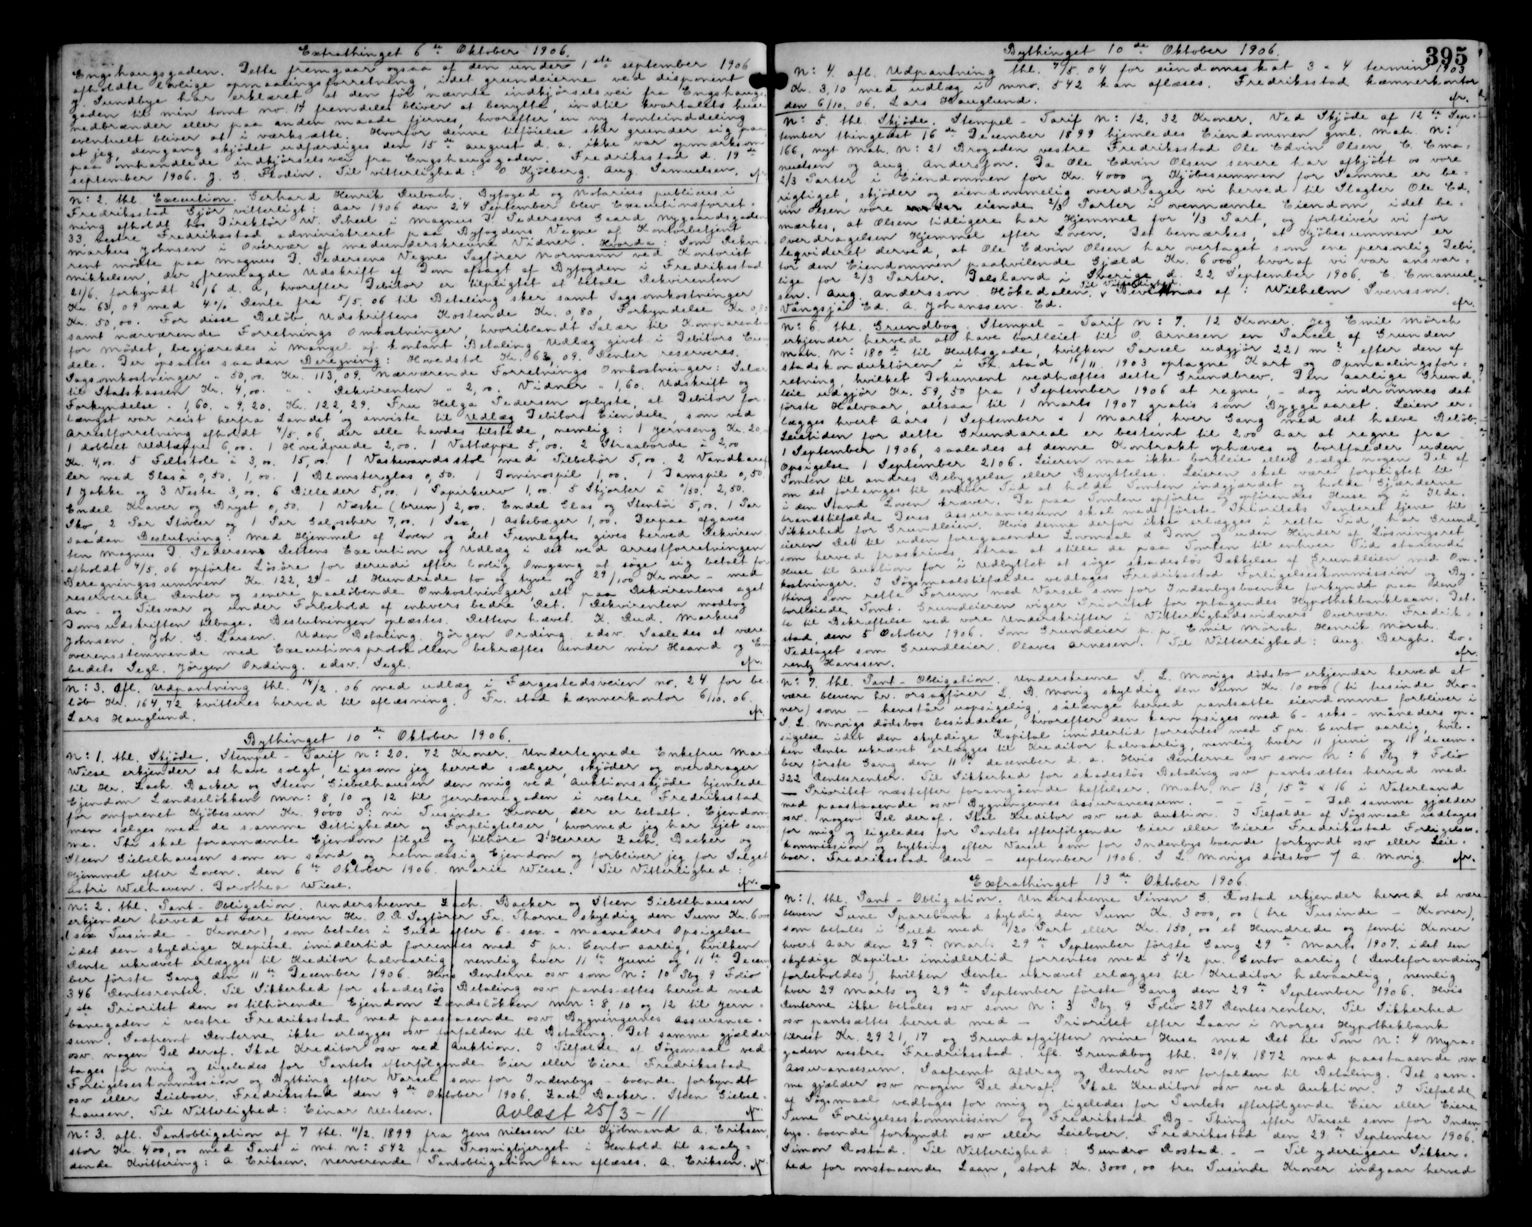 Extrathinget 6te Oktober 1906.
Engshaugsgaden. Dette fremgaar ogsaa af den under 1ste september 1906
afholdte lovlige opmaalingsforretning idet grundeierne ved disponent
J. Sundbye har erklæret at den før nævnte indkjörselsvei fra Engshaugs
gaden til min tomt no. 14 fremdeles bliver at benytte, indtil kvartalets huse
nedbrænder eller paa anden maade fjernes, hvorefter en ny tomteinddeling
eventuelt bliver at i værksætte. Hvorfor denne tilföielse sker grunder sig paa
at jeg, dengang skjödet udfærdiges den 15de august d. a. ikke var opmærksom
paa omhandlede indkjörselsvei fra Engshaugsgaden. Fredriksstad d. 19de
september 1906. J. E. Flodin. Til vitterlighed: O Kjölberg. Aug Samuelsen.
N: 2. thl. Execution. Gerhard Henrik Dubach. Byfoged og Notarius publicus i
Fredriksstad Gjör vitterligt: Aar 1906 den 24 September blev Executionsforret-
ning afholdt hos Direktör W. Scheel i Magnus J. Pedersens Gaard Nygaardsgaden
33 vestre Fredriksstad administreret paa Byfogdens Vegne af Kontorbetjent
Markus Johnsen i Overvær af medunderskrevne Vidner. Hvorda: Som Rekvi-
rent mödte paa Magnus J. Pedersens Vegne Sagförer Normann ved Kontorist
Mikkelsen, der fremlagde Udskrift af Dom afsagt af Byfogden i Fredriksstad
21/6. forkyndt 26/6 d. A, hvorefter Debitor er tilpligtet at betale Rekvirenten
Kr. 63,09 med 4% Rente fra 5/5. 06 til Betaling sker samt Sagsomkostninger
Kr. 50,00. For disse Belöb Udskriftens Kostende Kr. 0,80, Forkyndelse Kr. 0,80
samt nærværende Forretnings Omkostninger, hvoriblandt Salær til Komparenten
for mödet, begjæredes i Mangel af kontant Betaling Udlæg givet i Debitors Eien
dele. Der opsattes saadan Beregning: Hovedstol Kr. 63,09. Renter reserveres.
Sagsomkostninger " 50,00 Kr. 113,09. Nærværende Forretnings Omkostninger: Salær
til Statskassen Kr. 4,00. " " Rekvirenten " 2,00. Vidner " 1,60. Udskrift og
Forkyndelse " 1,60. " 9,20. Kr. 122,29. Fru Helga Pedersen oplyste, at Debitor for-
længst var reist herfra Landet og anviste til Udlæg Debitors Eiendele som ved
Arrestforretning afholdt 4/5. 06. der alle havdes tilstede, nemlig: 1 Jernseng Kr. 20
1 dobbelt Uldtæppe 6,00. 1 Hovedpude 2,00. 1 Vattæppe 5,00. 2 Straaborde à 2,00
Kr. 4,00. 5 Feltstole à 3,00. 15,00. 1 Vaskevandsstol med Tilbehör 5,00. 2 Vandkaraf
ler med Glas à 0,50. 1,00. 1 Blomsterglas 0,50. 1 Dominospil 1,00. 1 Damspil 0,50.
1 Jakke og 3 Veste 3,00. 6 Billeder 5,00. 1 Papirkurv 1,00. 5 Skjorter à 0/50. 2,50.
Endel Kraver og Bryst 0,50. 1 Væske (brun) 2,00. Endel Glas og Stentöi 5,00. 1 Par
Sko, 2 Par Stövler og 1 Par Galoscher 7,00. 1 Sax, 1 Askebæger 1,00. Derpaa afgaves
saadan Beslutning: Med Hjemmel af Loven og det Fremlagte gives herved Rekviren
ten Magnus J Pedersens Rettens Execution og Udlæg i det ved Arrestforretningen
afholdt 4/5. 06 opförte Lösöre for derudi efter lovlig Omgang at söge sig betalt for
Beregningssummen Kr. 122,29 - et Hundrede to og tyve og 29/100 Kroner - med
reserverede Renter og senere paalöbende Omkostninger, alt paa Rekvirentens eget
An- og Tilsvar og under Forbehold af enhvers bedre Ret. Rekvirenten modtog
Domsudskriften tilbage. Beslutningen oplæstes. Retten hævet. K. Rud. Markus
Johnsen. Joh. G. Larsen. Uden Betaling. Jörgen Ording. edsv. Saaledes at være
overensstemmende med Executionsprotokollen bekræftes under min Haand og Em
bedets Segl. Jörgen Ording. edsv. Segl.
N: 3. Afl. Udpantning thl. 14/2. 06 med udlæg i Færgestedsveien no. 24 for be
löb Kr. 164,72 kvitteres herved til aflæsning. Fr. stad kæmnerkontor 6/10. 06.
Lars Hauglund.
Bythinget 10de Oktober 1906.
N: 1. thl. Skjöde. Stempel - Tarif N: 20. 72 Kroner. Undertegnede Enkefru Marie
Wiese erkjender at have solgt, ligesom jeg herved sælger, skjöder og overdrager
til Hr. Zach. Backer og Steen Giebelhausen den mig ved Auktionsskjöde hjemlede
Ejendom Lændselökken mn: 8, 10 og 12 til Jernbanegaden i vestre Fredriksstad
for omforenet Kjöbesum Kr. 9000 D: ni Tusinde Kroner, der er betalt. Ejendom-
men sælges med de samme Rettigheder og Forpligtelser, hvormed jeg har ejet sam
me. Thi skal forannævnte Ejendom fölge og tilhöre D'Herrer Zach. Backer og
Steen Giebelhausen som en sand og retmæssig Ejendom og forbliver jeg for Salget
Hjemmel efter Loven. den 6te Oktober 1906. Marie Wiese. Til Vitterlighed:
Astri Welhaven. Dorothea Wiese.
N: 2. thl. Pant-Obligation. Underskrevne Zach. Backer og Steen Giebelhausen
erkjender herved at være bleven Hr. O. R. Sagförer Fr. Thorne skyldig den Sum Kr. 6000
(sex Tusinde - Kroner), som betales i Guld efter 6 - sex - maaneders Opsigelse
idet den skyldige Kapital imidlertid forrentes med 5 pr. Cento aarlig, hvilken
Rente ukrævet erlægges til Kreditor halvaarlig, nemlig hver 11te Juni og 11te Decem
ber förste Gang den 11te December 1906. Hvis Renterne osv som N: 10 Pbg 9 Folio
346 Rentesrenter. Til Sikkerhed for skadeslös Betaling osv pantsættes herved med
1ste Prioritet den os tilhörende Ejendom Lændslökken mn: 8, 10 og 12 til Jern-
banegaden i vestre Fredriksstad med paastaaende osv Bygningernes Assurance-
sum. Saafremt Renterne ikke erlægges osv forfalden til Betaling. Det samme gjælder
osv nogen Del deraf. Skal Kreditor osv ved Auktion. I Tilfælde af Sögsmaal ved
tages for mig og ligeledes for Pantets efterfölgende Eier eller Eiere Fredriksstad
Forligelseskommission og Bything efter Varsel som for Indenbys - boende forkyndt
osv eller Lieboer. Fredriksstad den 9de Oktober 1906. Zach Backer. Steen Giebel-
hausen. Til Vitterlighed: Einar Nilsen.
Avlæst 25/3-11
N: 3. afl. Pantobligation af 7 thl. 11/2. 1899 fra Jens Nilsen til Kjöbmand A. Eriksen,
stor Kr. 400,00 med Pant i mt. N: 542 paa Trosvigbjerget i Henhold til saaly-
dende Kvittering: A Eriksen. nærværende Pantobligation kan aflæses. A. Eriksen.
Bythinget 10de Oktober 1906.
395
N: 4. afl. Udpantning thl. 4/5. 04 for eiendomsskat 3 & 4 termin 1903
Kr. 3,10 med udlæg i mno. 542 kan aflæses. Fredriksstad kæmnerkontor
den 6/10. 06. Lars Hauglund.
N: 5. thl. Skjöde. Stempel - Tarif N: 12. 32 Kroner. Ved Skjöde af 12te Sep-
tember thinglæst 16de December 1899 hjemledes Eiendommen gml. Matr. N:
166, nyt Matr. N: 21 Brogaden vestre Fredriksstad Ole Edvin Olsen, E. Ema-
nuelsen og Aug Andersson. Da Ole Edvin Olsen senere har afkjöbt os vore
2/3 Parter i Eiendommen for Kr. 4000 og Kjöbesummen for Samme er be-
rigtiget, skjöder og eiendommelig overdrager vi herved til Slagter Ole Ed-
vin Olsen vore eiende 2/3 Parter i ovennævnte Eiendom idet be-
mærkes, at Olsen tidligere har Hjemmel for 1/3 Part, og forbliver vi for
Overdragelsen Hjemmel efter Loven. Det bemærkes, at Kjöbesummen er
legvideret derved, at Ole Edvin Olsen har overtaget som ene personlig Debi-
tor den Eiendommen paahvilende Gjæld Kr. 6000, hvoraf vi var ansvar-
lige for 2/3 Parter. Dalsland i Sverige d. 22 September 1906. E. Emanuel-
sen. Aug. Andersson. Hökedalen, Til Vitterlighed: Bevittnas af: Wilhelm Svensson.
Vångsjö Ed. A. Johanssen. Ed.
N: 6. thl. Grundbog. Stempel - Tarif N: 7. 12 Kroner. Jeg Emil Mörch
erkjender herved at have bortleiet til O Arnesen en Parcel af Grunden
Matr. N: 180 til Huthsgade, hvilken Parcel udgjör 221 m2 efter den af
Stadskonduktören i Fr. stad 16/11. 1903 optagne Kart og Opmaalingsfor-
retning, hvilket Dokument vedhæftes dette Grundbrev. Den aarlige Grund-
leie udgjör Kr. 59,50 fra 1 September 1906 at regne, - dog indrömmes det
förste Halvaar, altsaa til 1 Marts 1907 gratis som Byggeaaret. Leien er-
lægges hvert Aars 1 September & 1 Marts, hver Gang med det halve Belöb.
Leietiden for dette Grundareal er bestemt til 200 Aar at regne fra
1 September 1906, saaledes at denne Kontrakt ophæves og bortfalder uden
Opsigelse 1 September 2106. Leieren maa ikke bortleie eller sælge nogen Del af
Tomten til andres Bebyggelse eller Benyttelse. Leieren skal være forpligtet til
om det forlanges til enhver Tid at holde Tomten indgjærdet og holde Gjærderne
i den Stand Loven kræver. De paa Tomten opförte og opförendes Huse og i Ilds-
brandstilfælde deres Assurancesum skal med förste Prioritets Panteret tjene til
Sikkerhed for Grundleien. Hvis denne derfor ikke erlægges i rette Tid, har Grund-
eieren Ret til uden foregaaende Lovmaal & Dom og uden Hinder af Lösningsret
som herved fraskrives, straa at stille de paa Tomten til enhver Tid staaende
Huse til Auktion for i Udbyttet at söge skadeslös Dækkelse af Grundleien med Om-
kostninger. I Sögsmaalstilfælde vedtages Fredriksstad Forligelseskommission og By-
thing som rette Forum med Varsel som for Indenbysboende forkyndt paa den
bortleiede Tomt. Grundeieren viger Prioritet for optagendes Hypothekbanklaan. Det-
te til Bekræftelse ved vore Underskrifter i Vitterlighedsvidners Overvær. Fredrik-
stad, den 5 October 1906. Som Grundeier p. p. Emil Mörch Henrik Mörch.
Vedtaget som Grundleier. Olaves Arnesen. Til Vitterlighed: Aug. Bergh. Lo-
rentz Hanssen.
N: 7. thl. Pant-Obligation. Underskrevne S. L. Movigs dödsbo erkjender herved at
være bleven hr. Orsagförer L. B. Movig skyldig den Sum Kr. 10 000 (ti tusinde Kro-
ner) som - henstår uopsigelig, sålænge herved pantsatte eiendomme forbliver i
S. L. Movigs dödsbos besiddelse, hvorefter den kan opsiges med 6 - seks - måneders op-
sigelse idet den skyldige Kapital imidlertid forrentes med 5 pr. Cento aarlig, hvil-
ken Rente ukrævet erlægges til Kreditor halvaarlig, nemlig hver 11 juni og 11 decem-
ber förste Gang den 11te december d. a. Hvis Renterne osv som N: 6 Pbg 9 Folio
322 Rentesrenter. Til Sikkerhed for skadeslös Betaling osv pantsættes herved med
- Prioritet næstefter forangående heftelser. Matr. no 13, 15 & 16 i Vaterland
med paastaaende osv Bygningernes Assurancesum. - - - - - Det samme gjælder
osv. nogen Del deraf. Skal Kreditor osv ved Auktion. I Tilfælde af Sögsmaal vedtages
for mig og ligeledes for Pantets efterfölgende Eier eller Eiere Fredriksstad Forligelses-
kommission og bything efter Varsel som for Indenbys boende forkyndt osv eller Leie-
boer. Fredriksstad den - september 1906. S L. Movigs dödsbo / A. Movig
Extrathinget 13de Oktober 1906.
N: 1. thl. Pant-Obligation. Underskrevne Simon G. Rostad erkjender herved at være
bleven Tune Sparebank skyldig den Sum Kr. 3000,00 (tre Tusinde - Kroner),
som betales i Guld med 1/20 Part eller Kr. 150,00 et Hundrede og femti Kroner
hvert Aar den 29de Marts 29de September förste Gang 29de Marts 1907. idet den
skyldige Kapital imidlertid forrentes med 5 1/2 pr. Cento aarlig (Renteforandring
forbeholdes), hvilken Rente ukrævet erlægges til Kreditor halvaarlig, nemlig
hver 29 Marts og 29de September förste Gang den 29de September 1906. Hvis
Renterne ikke betales osv som N: 3 Pbg 9 Folio 287 Rentesrenter. Til Sikkerhed
osv pantsættes herved med - Prioritet efter Laan i Norges Hypothekbank
til rest Kr. 2921,17 og Grundafgiften mine Huse med Ret til Tomt N: 4 Myra-
gaden vestre Fredriksstad. Ifl. Grundbog thl. 20/4. 1872 med paastaaende osv
Assurancesum. Saafremt Afdrag og Renter osv forfalden til Betaling. Det sam-
me gjælder osv nogen Del deraf. Skal Kreditor osv ved Auktion. I Tilfælde
af Sögsmaal vedtages for mig og ligeledes for Pantets efterfölgende Eier eller Eiere
Tune Forligelseskommission og Fredriksstad By-Thing efter Varsel som for Inden
bys - boende forkyndt osv eller Leieboer. Fredriksstad den 29de September 1906.
Simon Rostad. Til Vitterlighed: Gundro Rostad. - - Til yderligere Sikker-
hed for omstaaende Laan, stort Kr. 3000,00 tre Tusinde Kroner indgaar herved